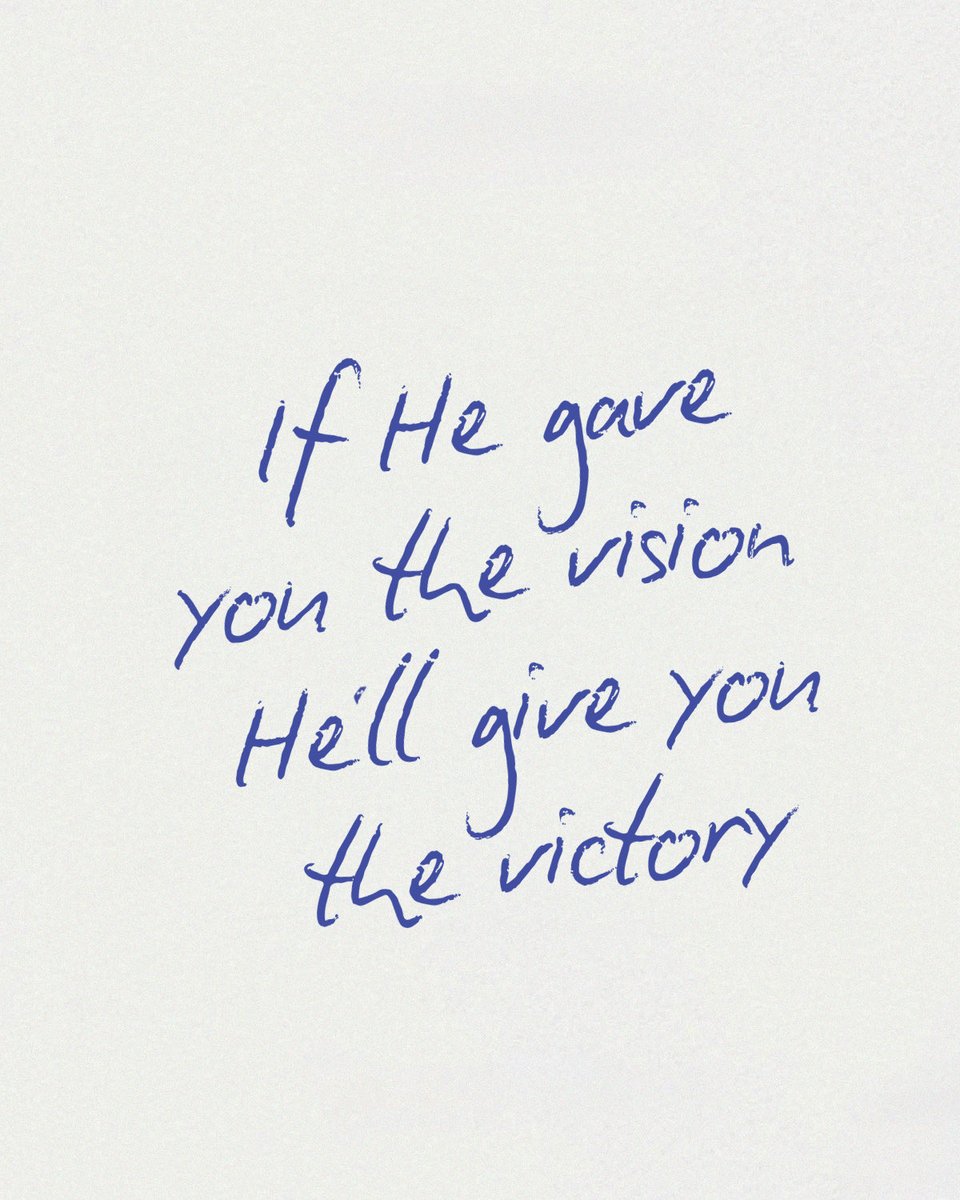 If He gave
you the vision
He'll give you
the victory